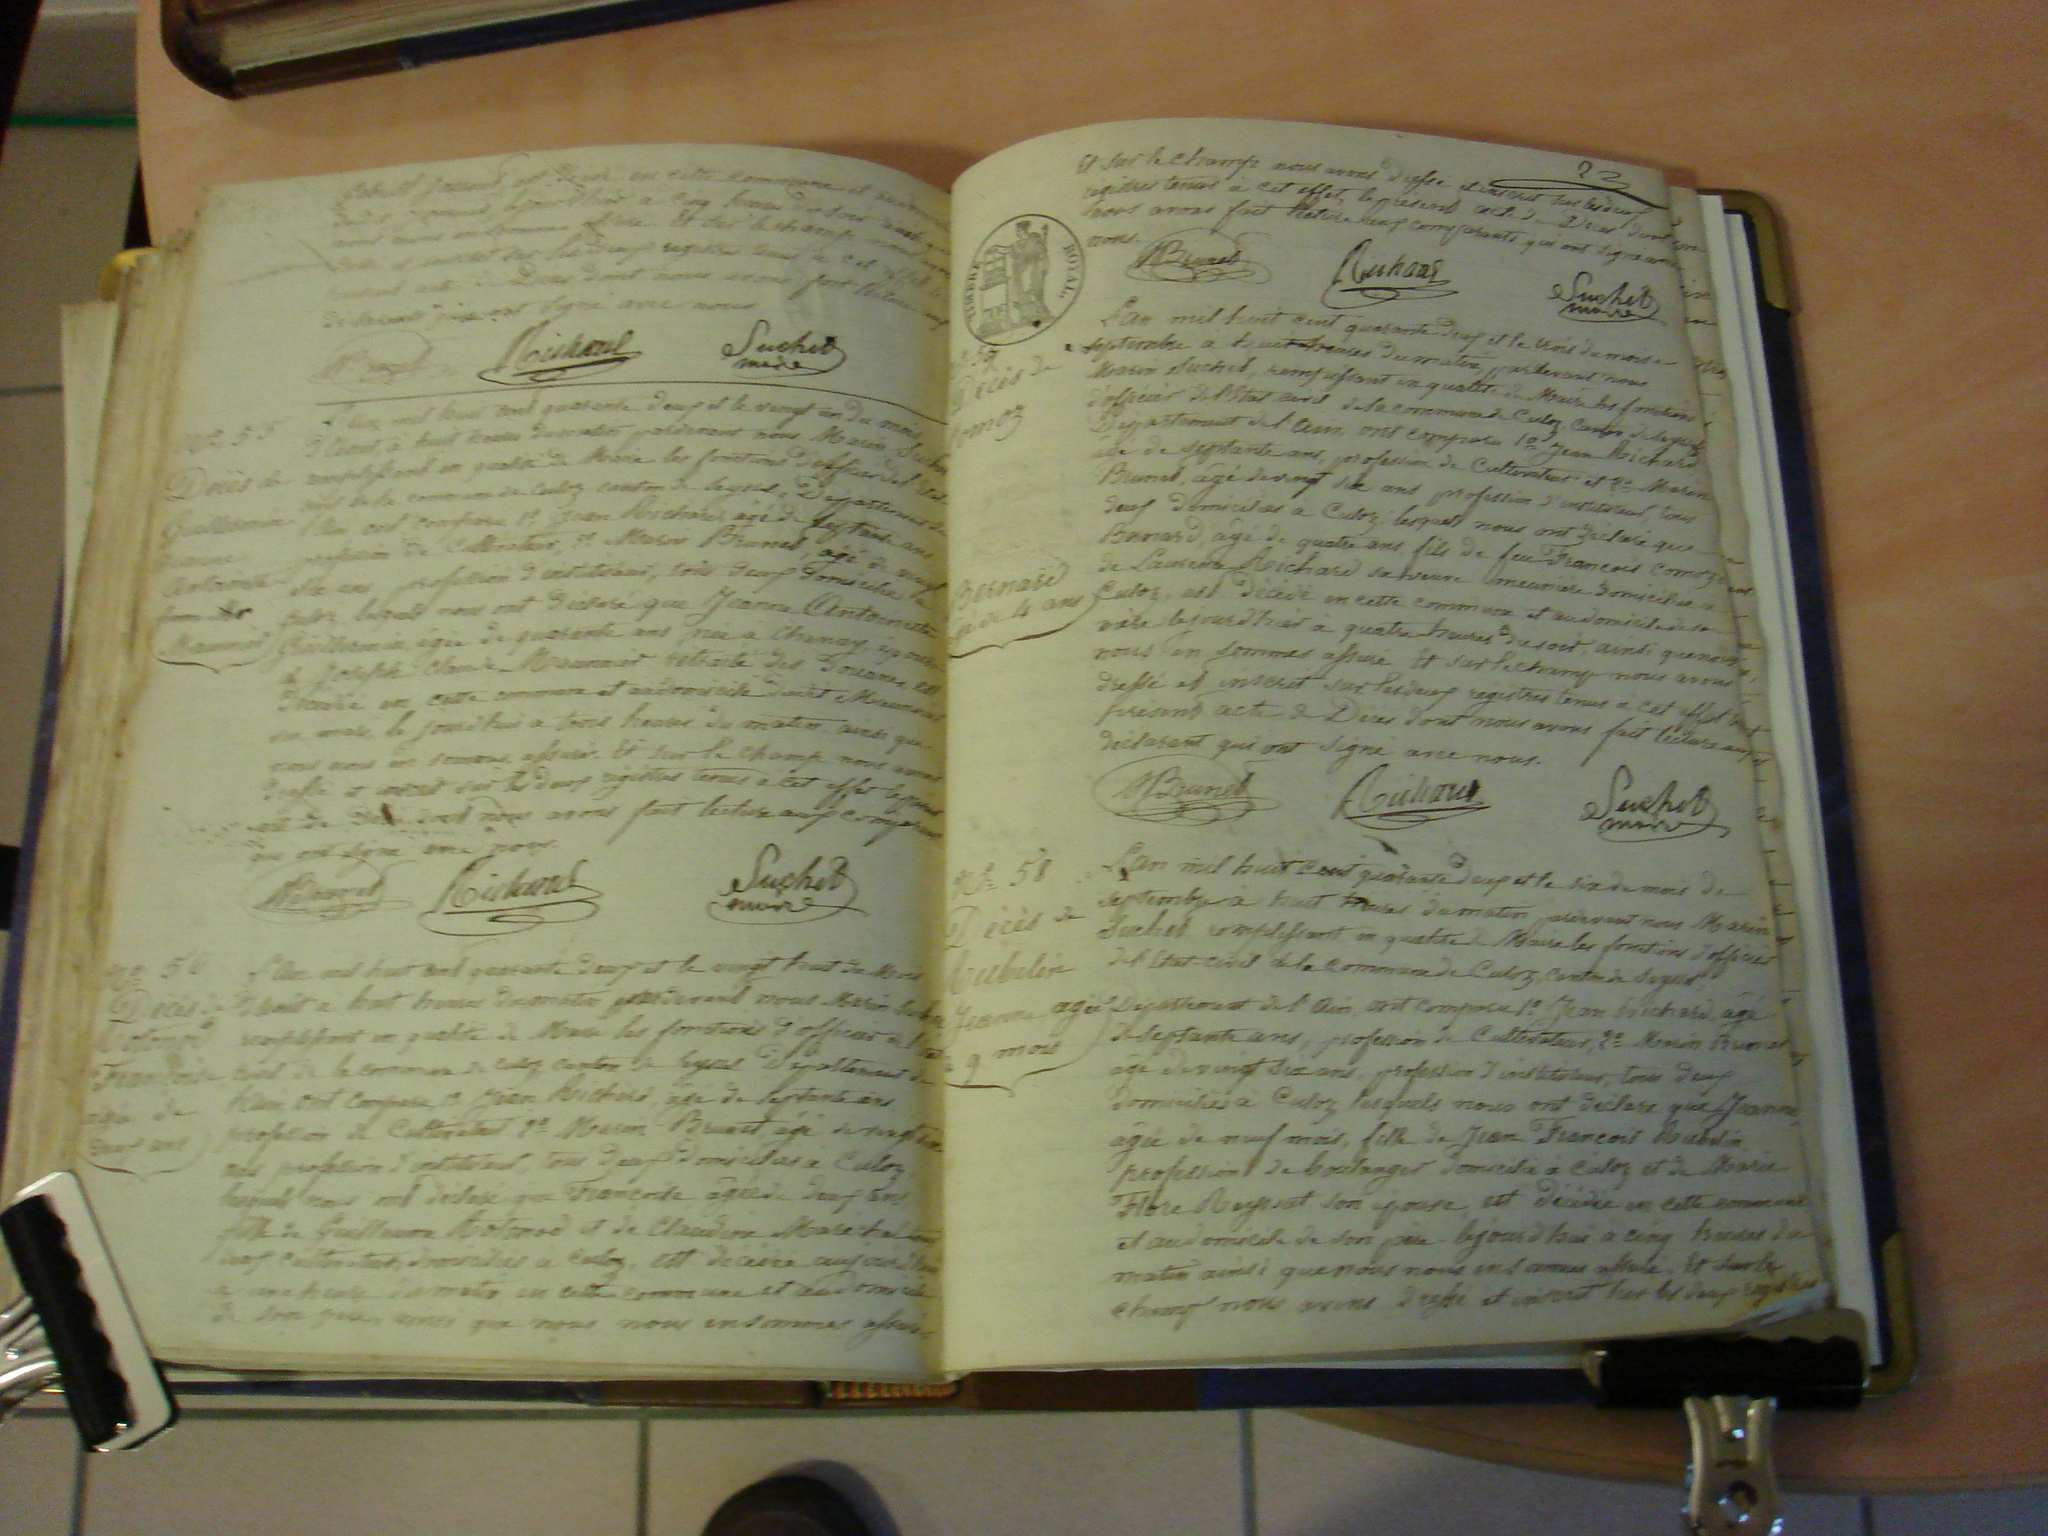 est décédé en cette commune et
à cinq heures du soir ainsi que
Et sur le champ nous avons
registres tenus à cet effet le
acte de Décès dont nous avons fait lecture aux
déclarants qui ont signé avec nous
Brunet Richard Suchet
maire
No 55
Décès de
Guillermin
Jeanne
Antoinette
femme
Maunier
L'an mil huit cent quarante deux et le vingt un du mois
d'Aout, à huit heures du matin pardevant nous Marin Suchet
remplissant en qualité de Maire les fonctions d'officier de l'Etat
civil de la commune de Culoz canton de Seyssel, Département de
l'Ain, ont comparu 1o Jean Richard, agé de septante ans
profession de Cultivateur, 2o Marin Brunet, agé de vingt
six ans profession d'instituteur, tous deux domiciliés à
Culoz, lesquels nous ont déclaré que Jeanne Antoinette
Guillermin, agée de quarante ans née à Chanay, épouse
de Joseph Claude Maunier retraité des Douanes, est
Décédée en cette commune et au domicile dudit Maunier
son mari, le jourd'hui à trois heures du matin ainsi que
nous nous en sommes assuré. Et sur le champ nous avons
dressé et inscrit sur les deux registres tenus à cet effet le présent
acte de Décès dont nous avons fait lecture aux comparants
qui ont signé avec nous
Brunet Richard Suchet
maire
No 56
Décès de
Françoise
agée de
deux ans
L'an mil huit cent quarante deux et le vingt huit du Mois
d'Aout à huit heures du matin pardevant nous Marin Suchet
remplissant en qualité de Maire les fonctions d'officier de l'Etat
civil de la commune de Culoz canton de Seyssel Département de
l'Ain, ont comparu 1o Jean Richard, âgé de septante ans
profession de Cultivateur 2o Marin Brunet, âgé de vingt six
ans profession d'instituteur, tous deux domiciliés à Culoz
lesquels nous ont déclaré que Françoise, âgée de deux ans
fille de Guillaume et de Claudine Maréchal tous
deux cultivateurs, domiciliés à Culoz, est décédée aujourd'hui
à une heure du matin en cette commune et au domicile
de son père, ainsi que nous nous en sommes assuré.
23
Et sur le champ nous avons dressé et inscrit sur les deux
registres tenus à cet effet, le présent acte de Décès dont
nous avons fait lecture aux comparants qui ont signé avec
nous.
TIMBRE ROYAL
Brunet Richard Suchet
maire
57
Décès de
Bernard
agé de 4 ans
L'an mil huit cent quarante deux et le trois du mois de
septembre à huit heures du matin, pardevant nous
Marin Suchet, remplissant en qualité de Maire les fonctions
d'officier de l'Etat civil de la commune de Culoz, canton de Seyssel
Département de l'Ain, ont comparu 1o Jean Richard
âgé de septante ans, profession de Cultivateur et 2o Marin
Brunet, âgé de vingt six ans profession d'instituteur, tous
deux domiciliés à Culoz, lesquels nous ont déclaré que
Bernard, âgé de quatre ans, fils de feu François
de Laurence Richard sa veuve meunière domiciliée à
Culoz, est décédé en cette commune et au domicile de sa
mère le jourd'hier à quatre heures du soir, ainsi que nous
nous en sommes assuré. Et sur le champ nous avons
dressé et inscrit sur les deux registres tenus à cet effet le
présent acte de Décès dont nous avons fait lecture aux
déclarant qui ont signé avec nous.
Brunet Richard Suchet
maire
No 58
Décès de
Aubelin
Jeanne agée
de 9 mois
L'an mil huit cent quarante deux et le six du mois de
septembre à huit heures du matin pardevant nous Marin
Suchet remplissant en qualité de Maire les fonctions d'officier
de l'Etat civil de la commune de Culoz, canton de Seyssel
Département de l'Ain, ont comparu 1o Jean Richard, âgé
de septante ans, profession de Cultivateur, 2o Marin Brunet
âgé de vingt six ans profession d'instituteur, tous deux
domiciliés à Culoz lesquels nous ont déclaré que Jeanne,
âgée de neuf mois, fille de Jean François Aubelin
profession de boulanger domicilié à Culoz et de Marie
Flore son épouse est décédée en cette commune
et au domicile de son père le jourd'hui à cinq heures du
matin ainsi que nous nous en sommes assuré. Et sur le
champ nous avons dressé et inscrit sur les deux registres